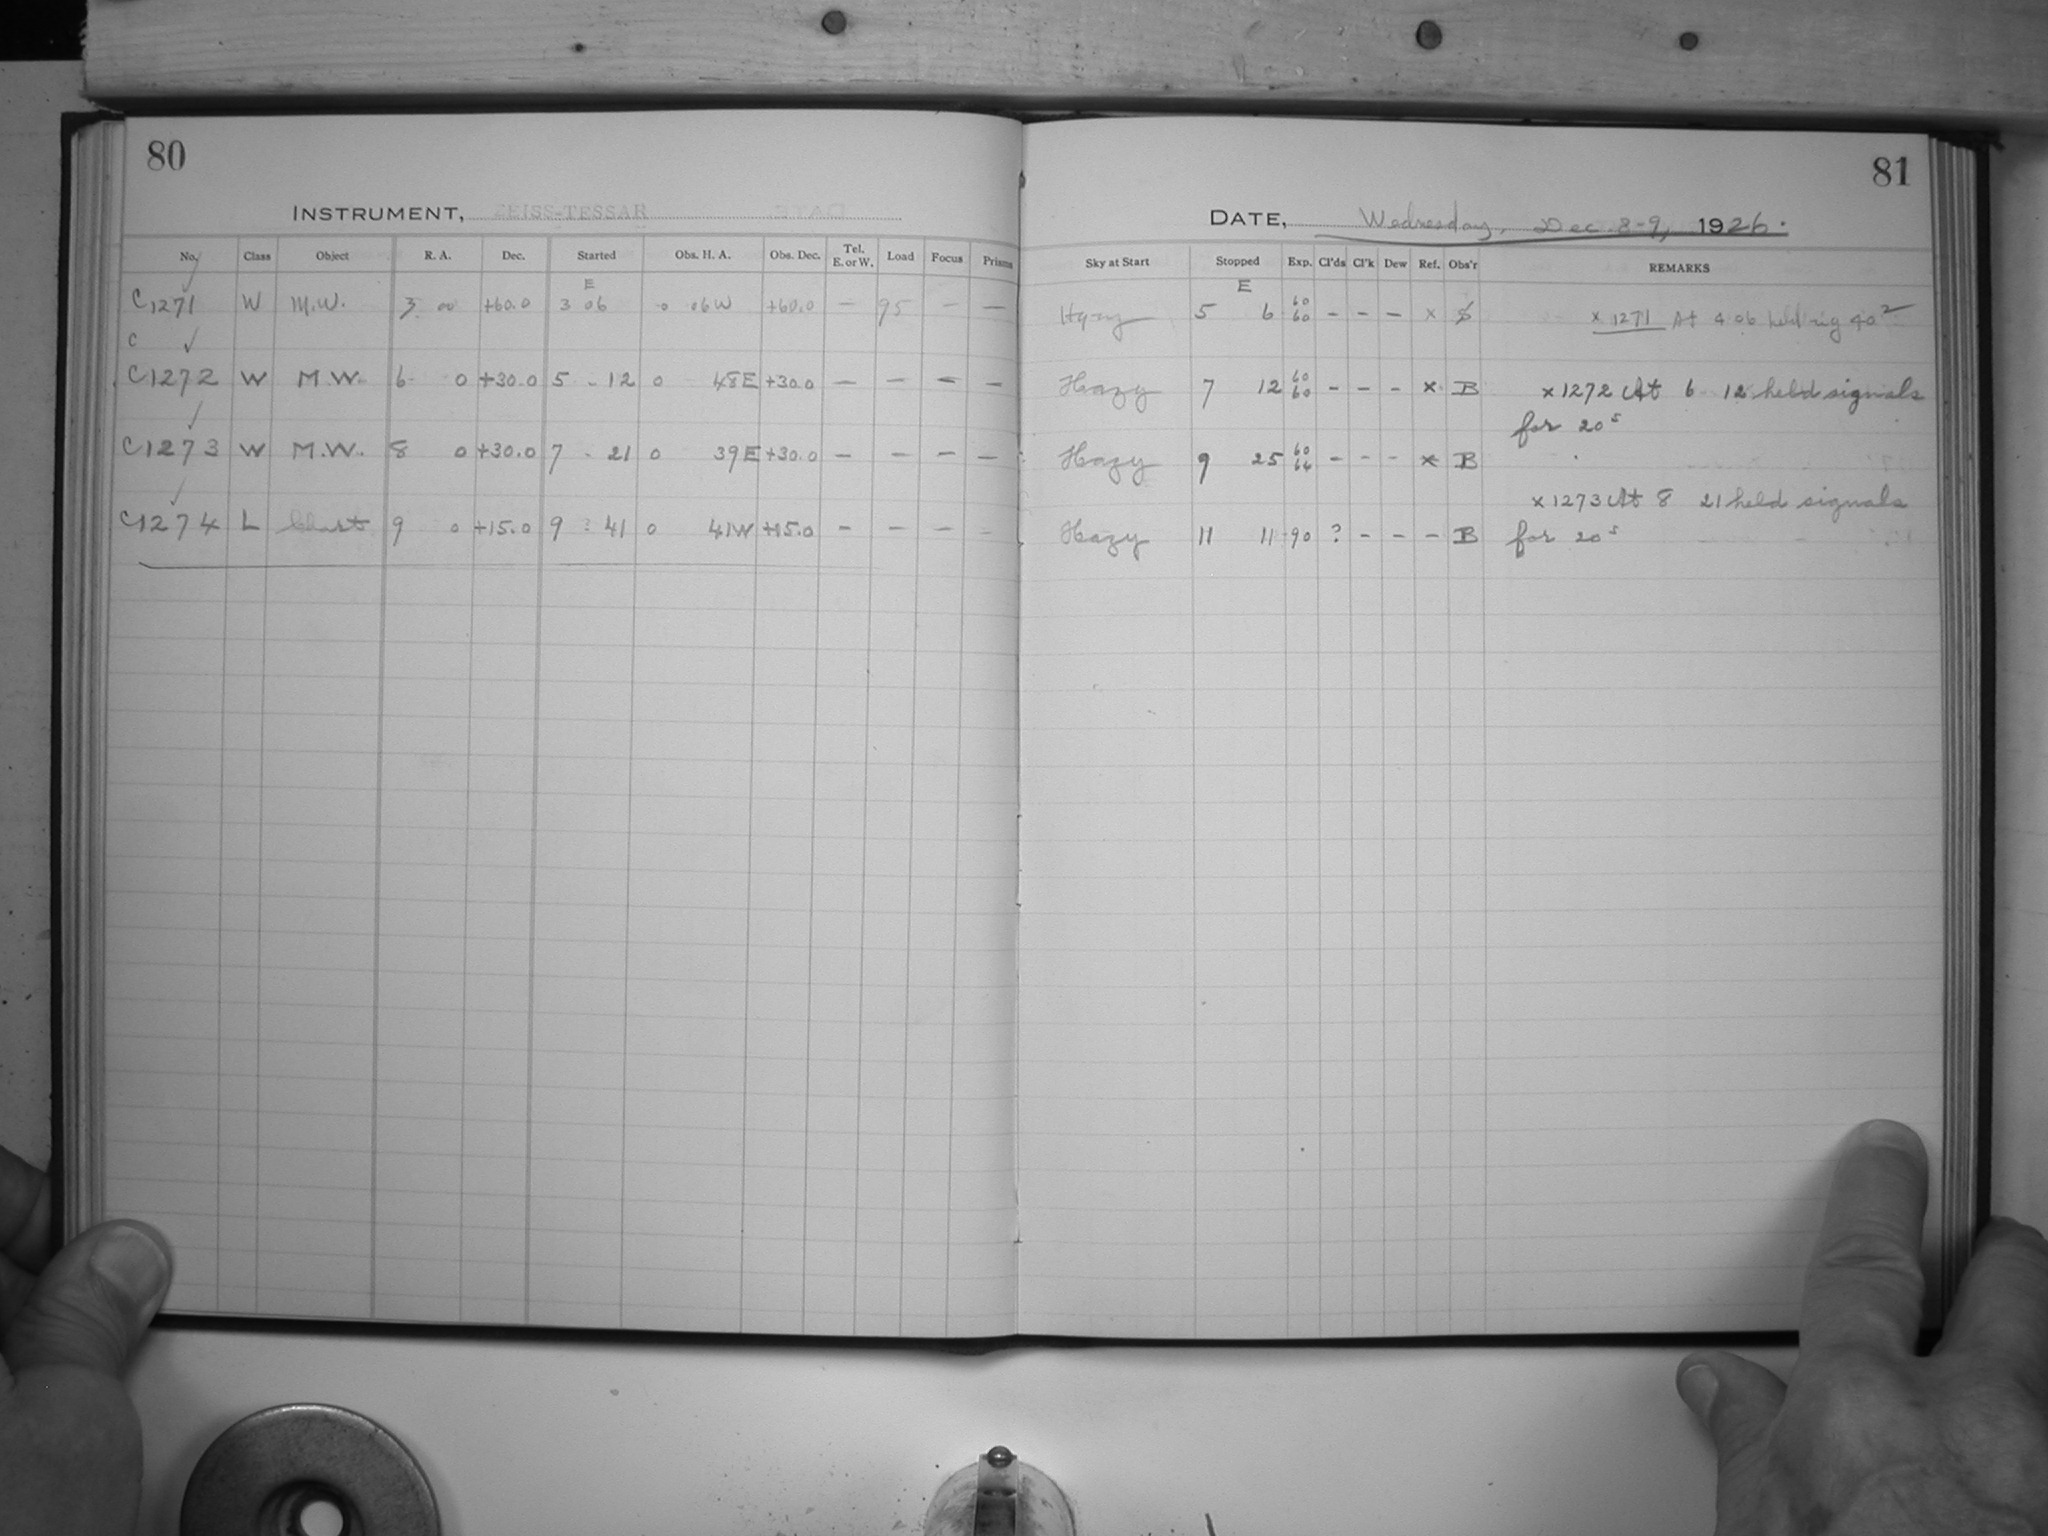 80
INSTRUMENT, ZEISS-TESSAR
No. Class Object R. A. Dec. Started Obs. H. A. Obs. Dec. Tel. E. or W. Load Focus Prisms
E
C1271 W M.W. 3 00 +60.0 3 06 0 06W +60.0 — 95 — —
C ✓
C1272 W M.W. 6 0 +30.0 5 - 12 0 48E +30.0 — — — —
✓
C1273 W M.W. 8 0 +30.0 7 - 21 0 39E +30.0 — — — —
✓
C1274 L Chart 9 0 +15.0 9 : 41 0 41W +15.0 — — — –
81
DATE, Wednesday, Dec. 8-9, 1926.
Sky at Start Stopped Exp. Cl'ds Cl'k Dew Ref. Obs'r REMARKS
E
Hazy 5 6 60 60 – – – x x 1271 At 4 06 held rig 40
Hazy 7 12 60 60 – – – x B x 1272 At 6 12 held signals
for 20s
Hazy 9 25 60 64 – – – x B
x 1273 At 8 21 held signals
Hazy 11 11 90 ? – – – B for 20s